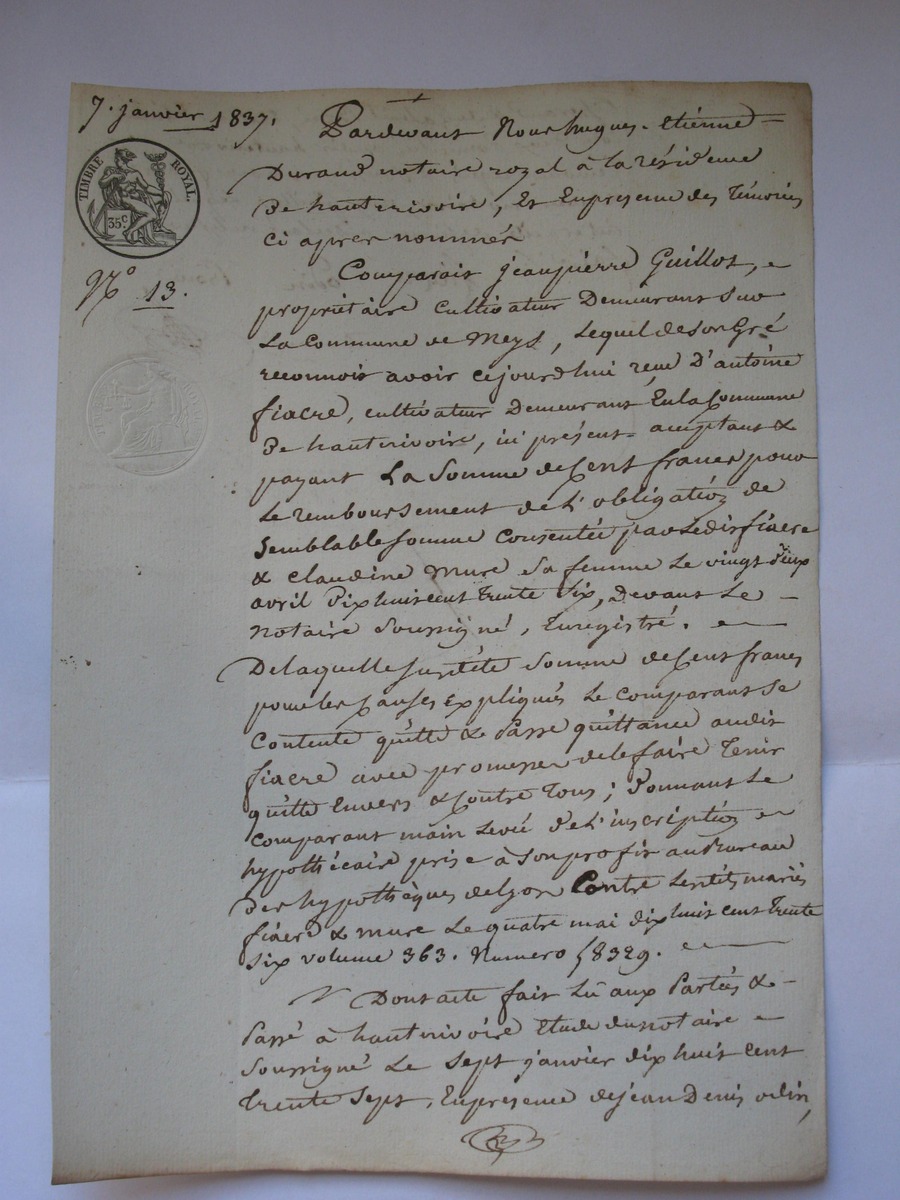 7. janvier 1837.
TIMBRE ROYAL.
35 C
N° 13.
Pardevant Nous hugues-Etiénne
Durand notaire royal à la résidence
De hauterivoire, Et En présence des Témoins
Ci après nommés
Comparait jeanpierre Guillot,
propriétaire Cultivateur Demeurant Sur
La Commune de Meys, Lequel de Son Gré
reconnoit avoir cejourd'hui reçu D'antoine
fiacre, cultivateur Demeurant En la Commune
De hauterivoire, ici présent acceptant &
payant La Somme de Cent francs pour
Le remboursement de L'obligation de
Semblable Somme Consentie par Ledit fiacre
& claudine Mure Sa femme Le vingt Deux
avril Dix huit cent Trente Six, Devant Le
notaire Soussigné, Enregistré.
De laquelle Susdite Somme de Cent francs
pour les Causes Expliqués Le Comparant Se
Contente quitte & Passe quittance audit
fiacre avec promesse de le faire Tenir
quitte Envers & Contre Tous ; Donnant Le
Comparant main Levée De L'inscription
hypothécaire prise à Son profit au Bureau
Des hypothèques de Lyon Contre Lesdits mariés
fiacre & mure Le quatre mai dix huit cent Trente
Six volume 363. Numero 18329.
Dont acte fait Lû aux Parties &
Passé à hauterivoire Etude du notaire
Soussigné Le Sept janvier dix huit cent
Trente Sept, En présence de jean Denis odin,